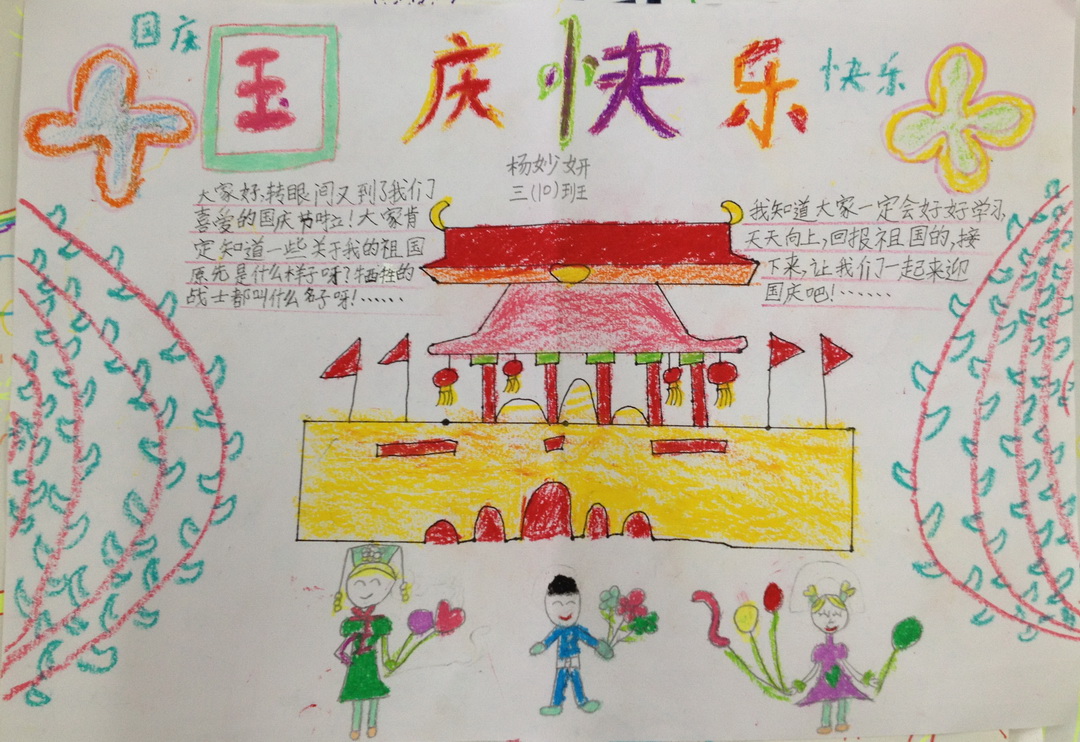 国庆
国庆快乐
快乐
杨妙妍
三(10)班
大家好,转眼间又到了我们
喜爱的国庆节啦!大家肯
定知道一些关于我的祖国
原先是什么样子呀?牺牲的
战士都叫什么名子呀!······
我知道大家一定会好好学习,
天天向上,回报祖国的,接
下来,让我们一起来迎
国庆吧!······